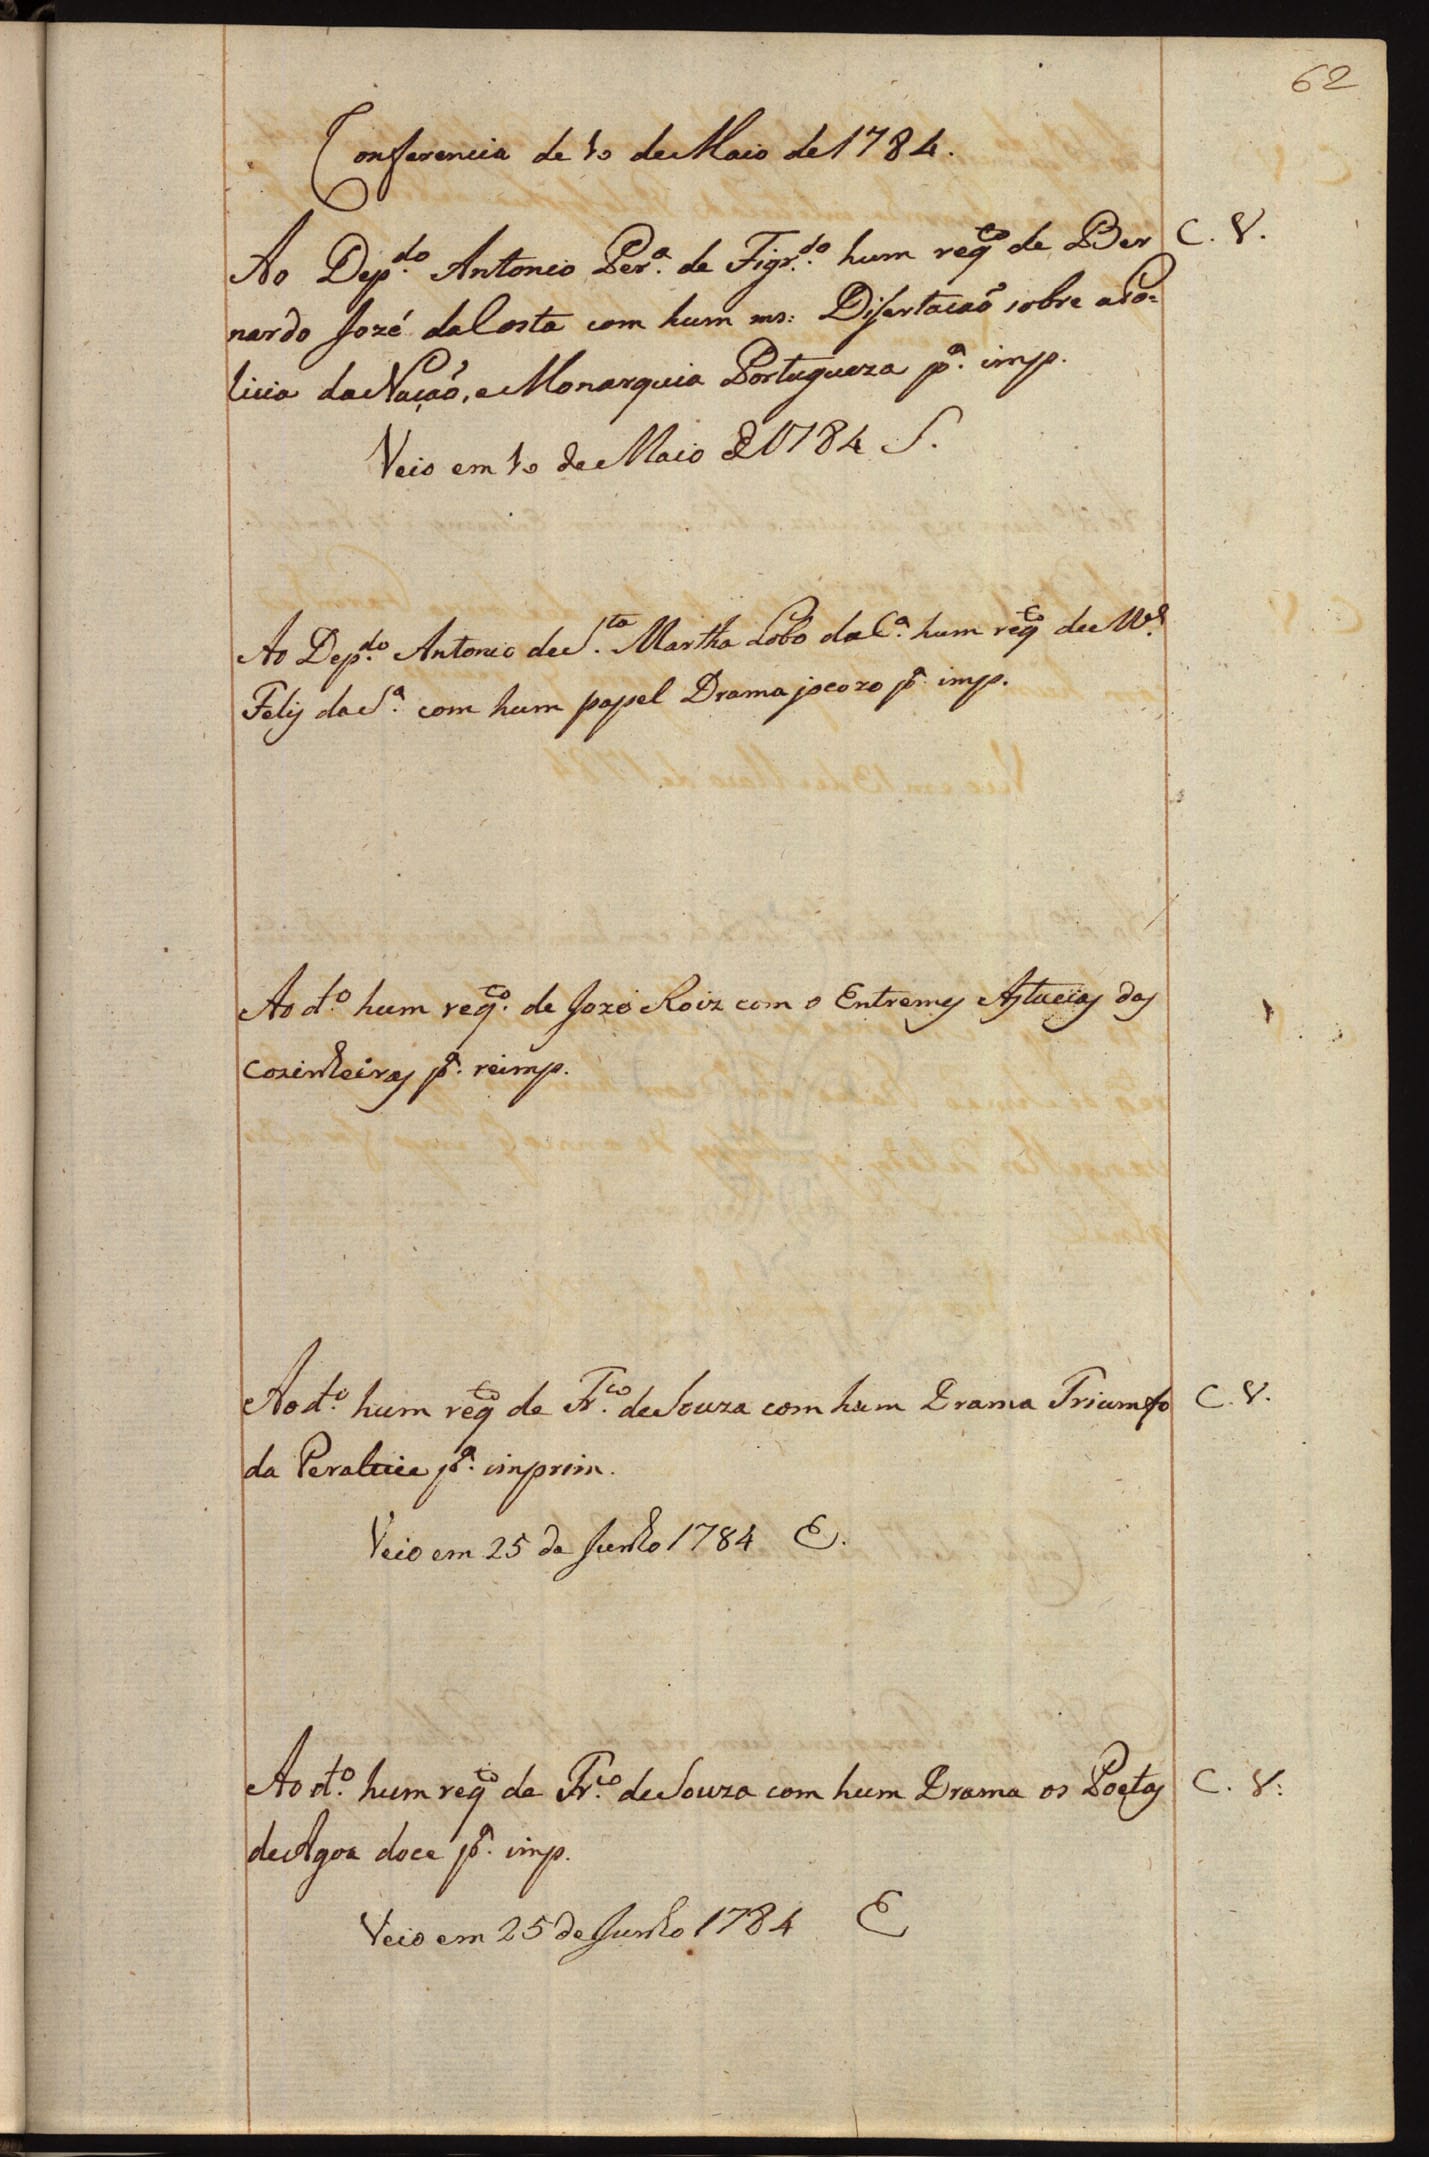 62
Conferencia de 10 de Maio de 1784.
Ao Dep.do Antonio Per.a de Figr.do hum reqto de Ber C. V.
nardo Jozé da Costa com hum ms: Disertacaõ sobre a Po=
licia da Naçaõ, e Monarquia Portugueza p.a imp.
Veio em 10 de Maio de 1784 S.
Ao Dep.do Antonio de S.ta Martha Lobo da C.a hum reqto de M.el
Felis da S.a com hum papel Drama jocozo p.a imp.
Ao d.o hum reqto. de Jozé Roiz com o Entremes Astucias das
Cozinheiras p.a reimp.
Ao d.o hum reqto de Fr.co de Souza com hum Drama Triumfo C. V.
da Peraltice p.a imprim.
Veio em 25 de Junho 1784 E.
Ao d.o hum reqto de Fr.co de Souza com hum Drama os Poetas C. V:
de Agoa doce p.a imp.
Veio em 25 de Junho 1784 E